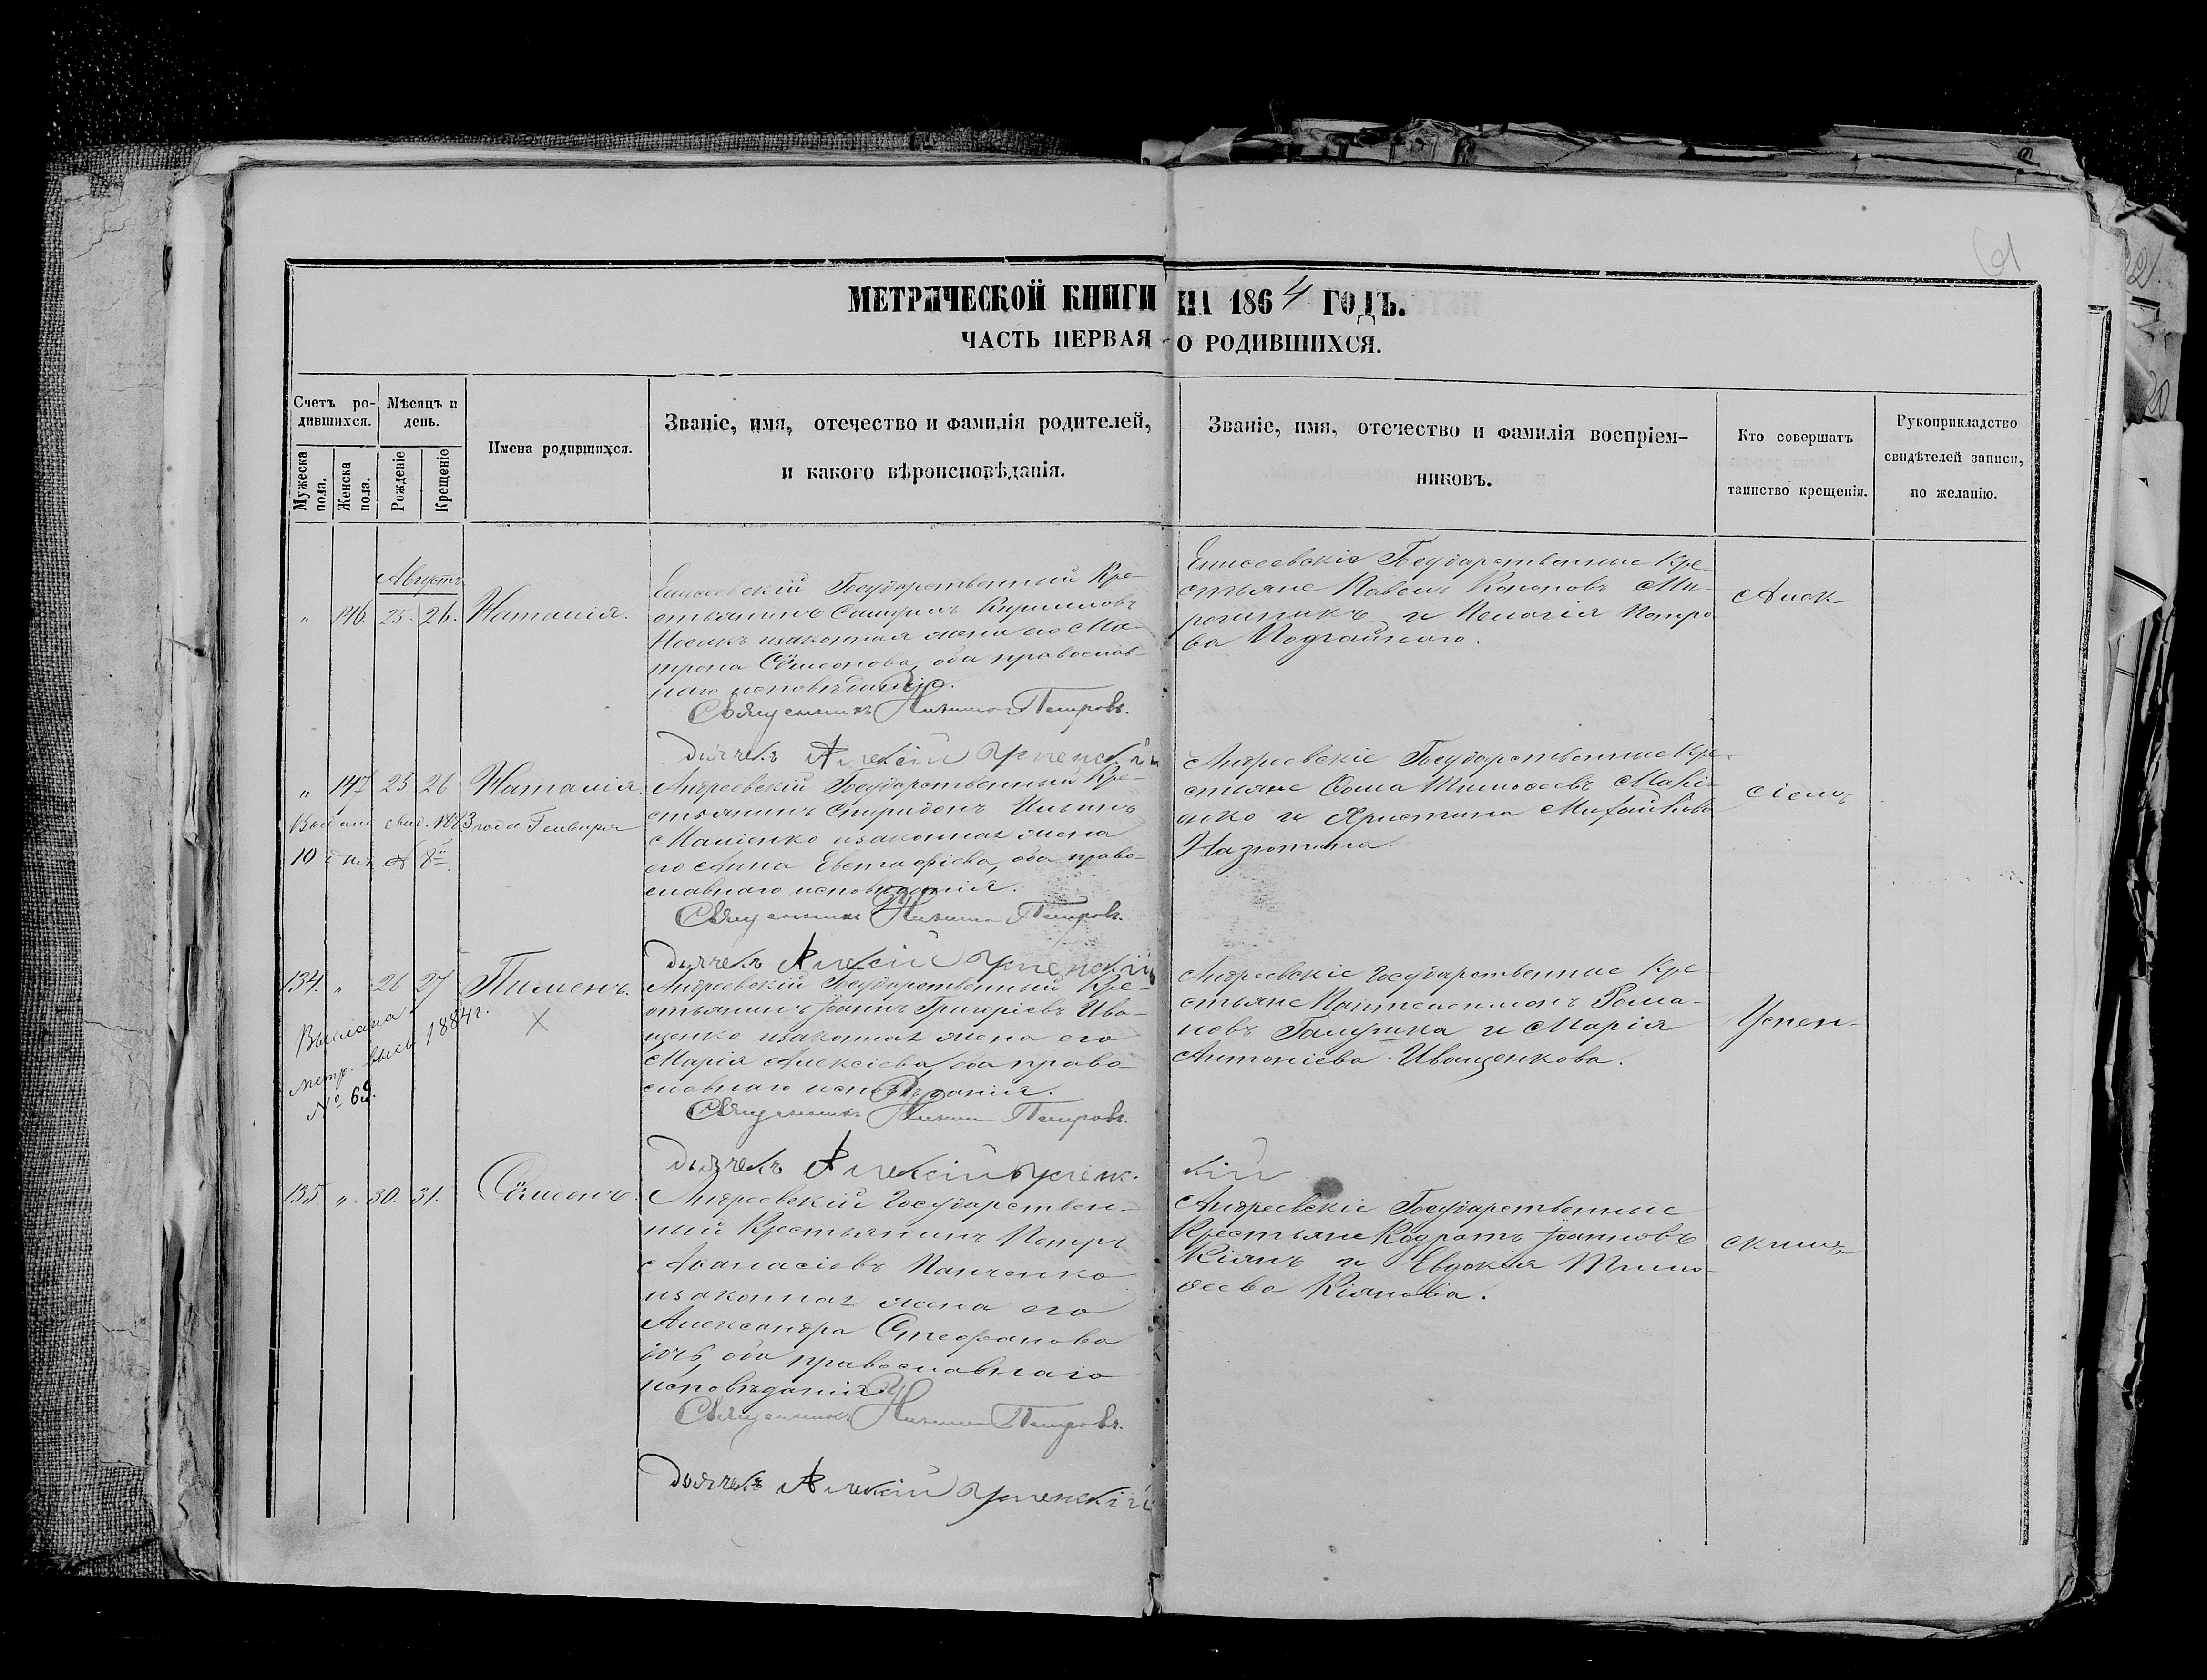 61
МЕТРИЧЕСКОЙ КНИГИ НА 1864 ГОДЪ.
ЧАСТЬ ПЕРВАЯ О РОДИВШИХСЯ.
Счетъ ро-
дившихся.
Мужеска пола.
Женска пола.
Мѣсяцъ и
день.
Рожденіе
Крещеніе
Имена родившихся.
Званіе, имя, отечество и фамилія родителей,
и какого вѣроисповѣданія.
Званіе, имя, отечество и фамилія воспріем-
никовъ.
Кто совершатъ
таинство крещенія.
Рукоприкладство
свидѣтелей записи,
по желанію.
Августъ
„ 146. 25. 26. Наталія.
Елисеевскій Государственный Кре-
стьянинъ Кириловъ
Носакъ изаконная жена его Ма-
трона Сѵмеонова, оба православ-
наго исповѣданія.
Священникъ Петровъ.
Дьячекъ Алексій Успенскій
Елисеевскіе Государственные Кре-
стьяне Павелъ Кононовъ Ми-
рошникъ и Пелагія Петро
ва Подгайного.
Алек-
„ 147 25 26 Наталія.
1883 года Генваря
10 дня № 8й.
Андреевскій Государственный Кре-
стьянинъ Спиридонъ Ильинъ
изаконная жена
его Анна Евстафіева, оба право-
славнаго исповѣданія.
Священникъ Петровъ.
Дьячекъ Алексій Успенскій
Андреевскіе Государственные Кре-
стьяне Ѳома Тимоѳеевъ
и Христина Михайлова
сіемъ
134. „ 26 27 Пименъ.
Выслана
метр. выпись 1884г.
№ 62.
X
Андреевскій Государственный Кре-
стьянинъ Іоаннъ Григоріевъ Ива-
щенко изаконная жена его
Марія Алексіева, оба право-
славнаго исповѣданія.
Священникъ Петровъ.
Дьячекъ Алексій Успенс.
кій
Андреевскіе Государственные Кре-
стьяне Пантелеимонъ Рома-
новъ Галушка и Марія
Антоніева Иващенкова.
Успен-
135. „ 30. 31. Сѵмеонъ.
Андреевскій Государствен-
ный Крестьянинъ Петръ
Аѳанасіевъ Панченко
изаконная жена его
Александра Стефанова
оба православнаго
исповѣданія.
Священникъ Петровъ.
Дьячекъ Алексій Успенскій
Андреевскіе Государственные
Крестьяне Кодратъ Іоанновъ
Кіянъ и Евдокія Тимо-
ѳеева Кіянова.
скимъ